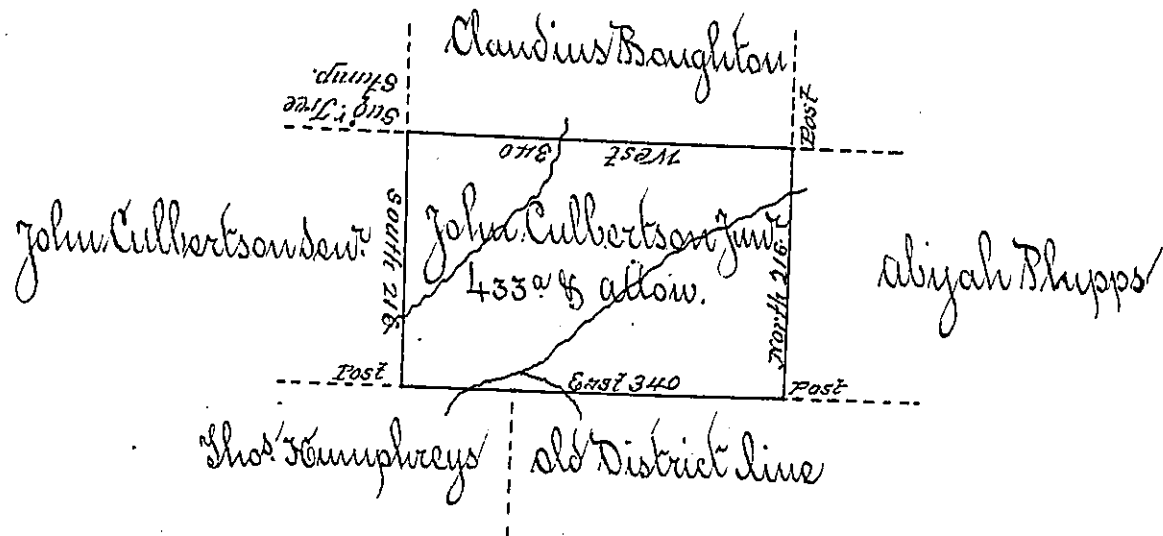 Claudius Boughton
Sugr. Tree
Stump.
Post
West 340
John Culbertson Senr.
South 216
John Culbertson Junr.
433a & allow.
North 216
Abijah Phipps
Post
East 340
Post
Thos. Humphreys
Old District line